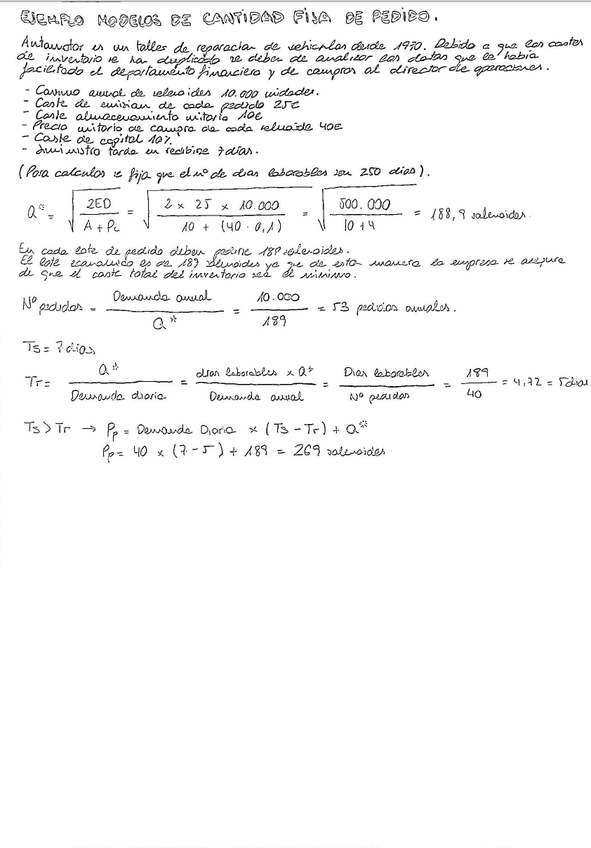 EJEMPLO MODELOS DE CANTIDAD FIJA DE PEDIDO.
Automotor es un taller de reparación de vehiculos desde 1970. Debido a que los costes
de inventario se han duplicado se deben de analizar los datos que le había
facilitado el departamento financiero y de compras al director de operaciones.
- Consumo anual de solenoides 10.000 unidades.
- Coste de emision de cada pedido 25€
- Coste almacenamiento unitario 10€
- Precio unitario de compra de cada solenoide 40€
- Coste de capital 10%.
- Suministro tarda en recibirse 7 días.
(Para calculos se fija que el nº de dias laborables son 250 dias).
Q* = √(2ED / A + Pc) = √(2 x 25 x 10.000 / 10 + (40 · 0,1)) = √(500.000 / 10 + 4) = 188,9 solenoides.
En cada lote de pedido deben pedirse 189 solenoides.
El lote económico es de 189 solenoides ya que de esta manera la empresa se asegura
de que el coste total del inventario sea el mínimo.
Nº pedidos = Demanda anual / Q* = 10.000 / 189 = 53 pedidos anuales.
Ts = 7 días
Tr = Q* / Demanda diaria = dias laborables x Q* / Demanda anual = Dias laborables / Nº pedidos = 189 / 40 = 4,72 = 5 dias
Ts > Tr → Pp = Demanda Diaria x (Ts - Tr) + Q*
Pp = 40 x (7 - 5) + 189 = 269 solenoides